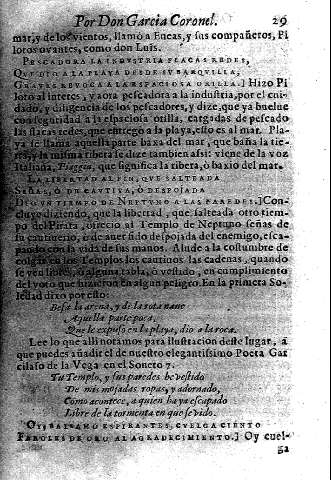 Por Don Garcia Coronel. 29
mar, y de los vientos, llamò a Eneas, y sus compañeros, Pi
lotos ovantes, como don Luis.
PESCADORA LA INDVSTRIA FLACAS REDES,
QVE DIO A LA PLAYA DESDE SV BARQVILLA,
GRAVES REVOCA A LA ESPACIOSA ORILLA.] Hizo Pi
loto al interes, y aora pescadora a la industria, por el cui
dado, y diligencia de los pescadores, y dize, que ya buelue
con seguridad a la espaciosa orilla, cargadas de pescado
las flacas redes, que entregò a la playa, esto es al mar. Pla-
ya se llama aquella parte baxa del mar, que baña la tie-
rra, y la misma ribera se dize tambien assi: viene de la voz
Italiana, Piaggia, que significa la ribera, ò baxio del mar.
LA LIBERTAD AL FIN, QVE SALTEADA
SEÑAS, O DE CAVTIVA, O DESPOJADA
DIO VN TIEMPO DE NEPTVNO A LAS PAREDES.] Con
cluye diziendo, que la libertad, que salteada otro tiem-
po del Pirata, ofrecio al Templo de Neptuno señas de
su cautiuerio, ò de auer sido despojada del enemigo, esca-
pando con la vida de sus manos. Alude a la costumbre de
colgar en los Templos los cautiuos las cadenas, quando
se ven libres, ò alguna tabla, ò vestido, en cumplimiento
del voto que hizieron en algun peligro. En la primera So-
ledad dixo por esto:
Besa la arena, y de la rota naue
Aquella parte poca,
Que le expuso en la playa, dio a la roca.
Lee lo que alli notamos para ilustracion deste lugar, a
que puedes añadir el de nuestro elegantissimo Poeta Gar
cilaso de la Vega en el Soneto 7.
Tu Templo, y sus paredes he vestido
De mis mojadas ropas, y adornado,
Como acontece, a quien ha ya escapado
Libre de la tormenta en que se vido.
OY, BALSAMO ESPIRANTES, CVELGA CIENTO
PAROLES DE ORO AL AGRADECIMIENTO.] Oy cuel-
ga